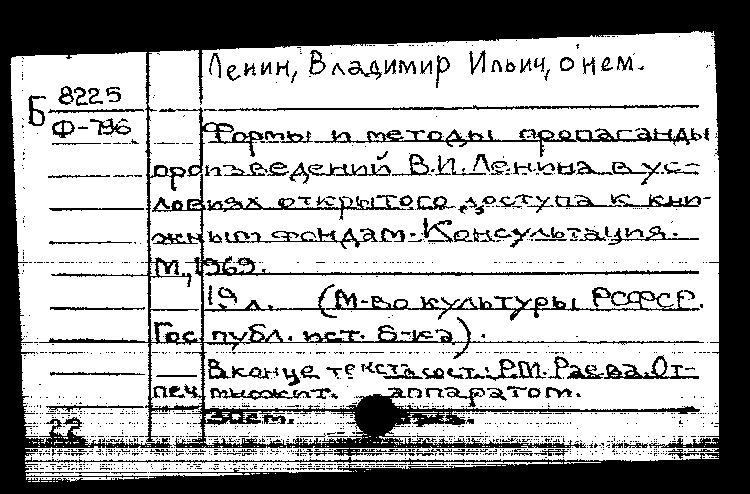 Ленин, Владимир Ильич, о нем.
Б 8225
Ф-796
Формы и методы пропаганды
произведений В.И. Ленина в ус-
ловиях открытого доступа к кни-
жным фондам. Консультация.
М., 1969.
19 л. (М-во культуры РСФСР.
Гос. публ. ист. б-ка).
В конце текста сост.: Р.М. Раева. От-
печ. множит. аппаратом.
30см.
22